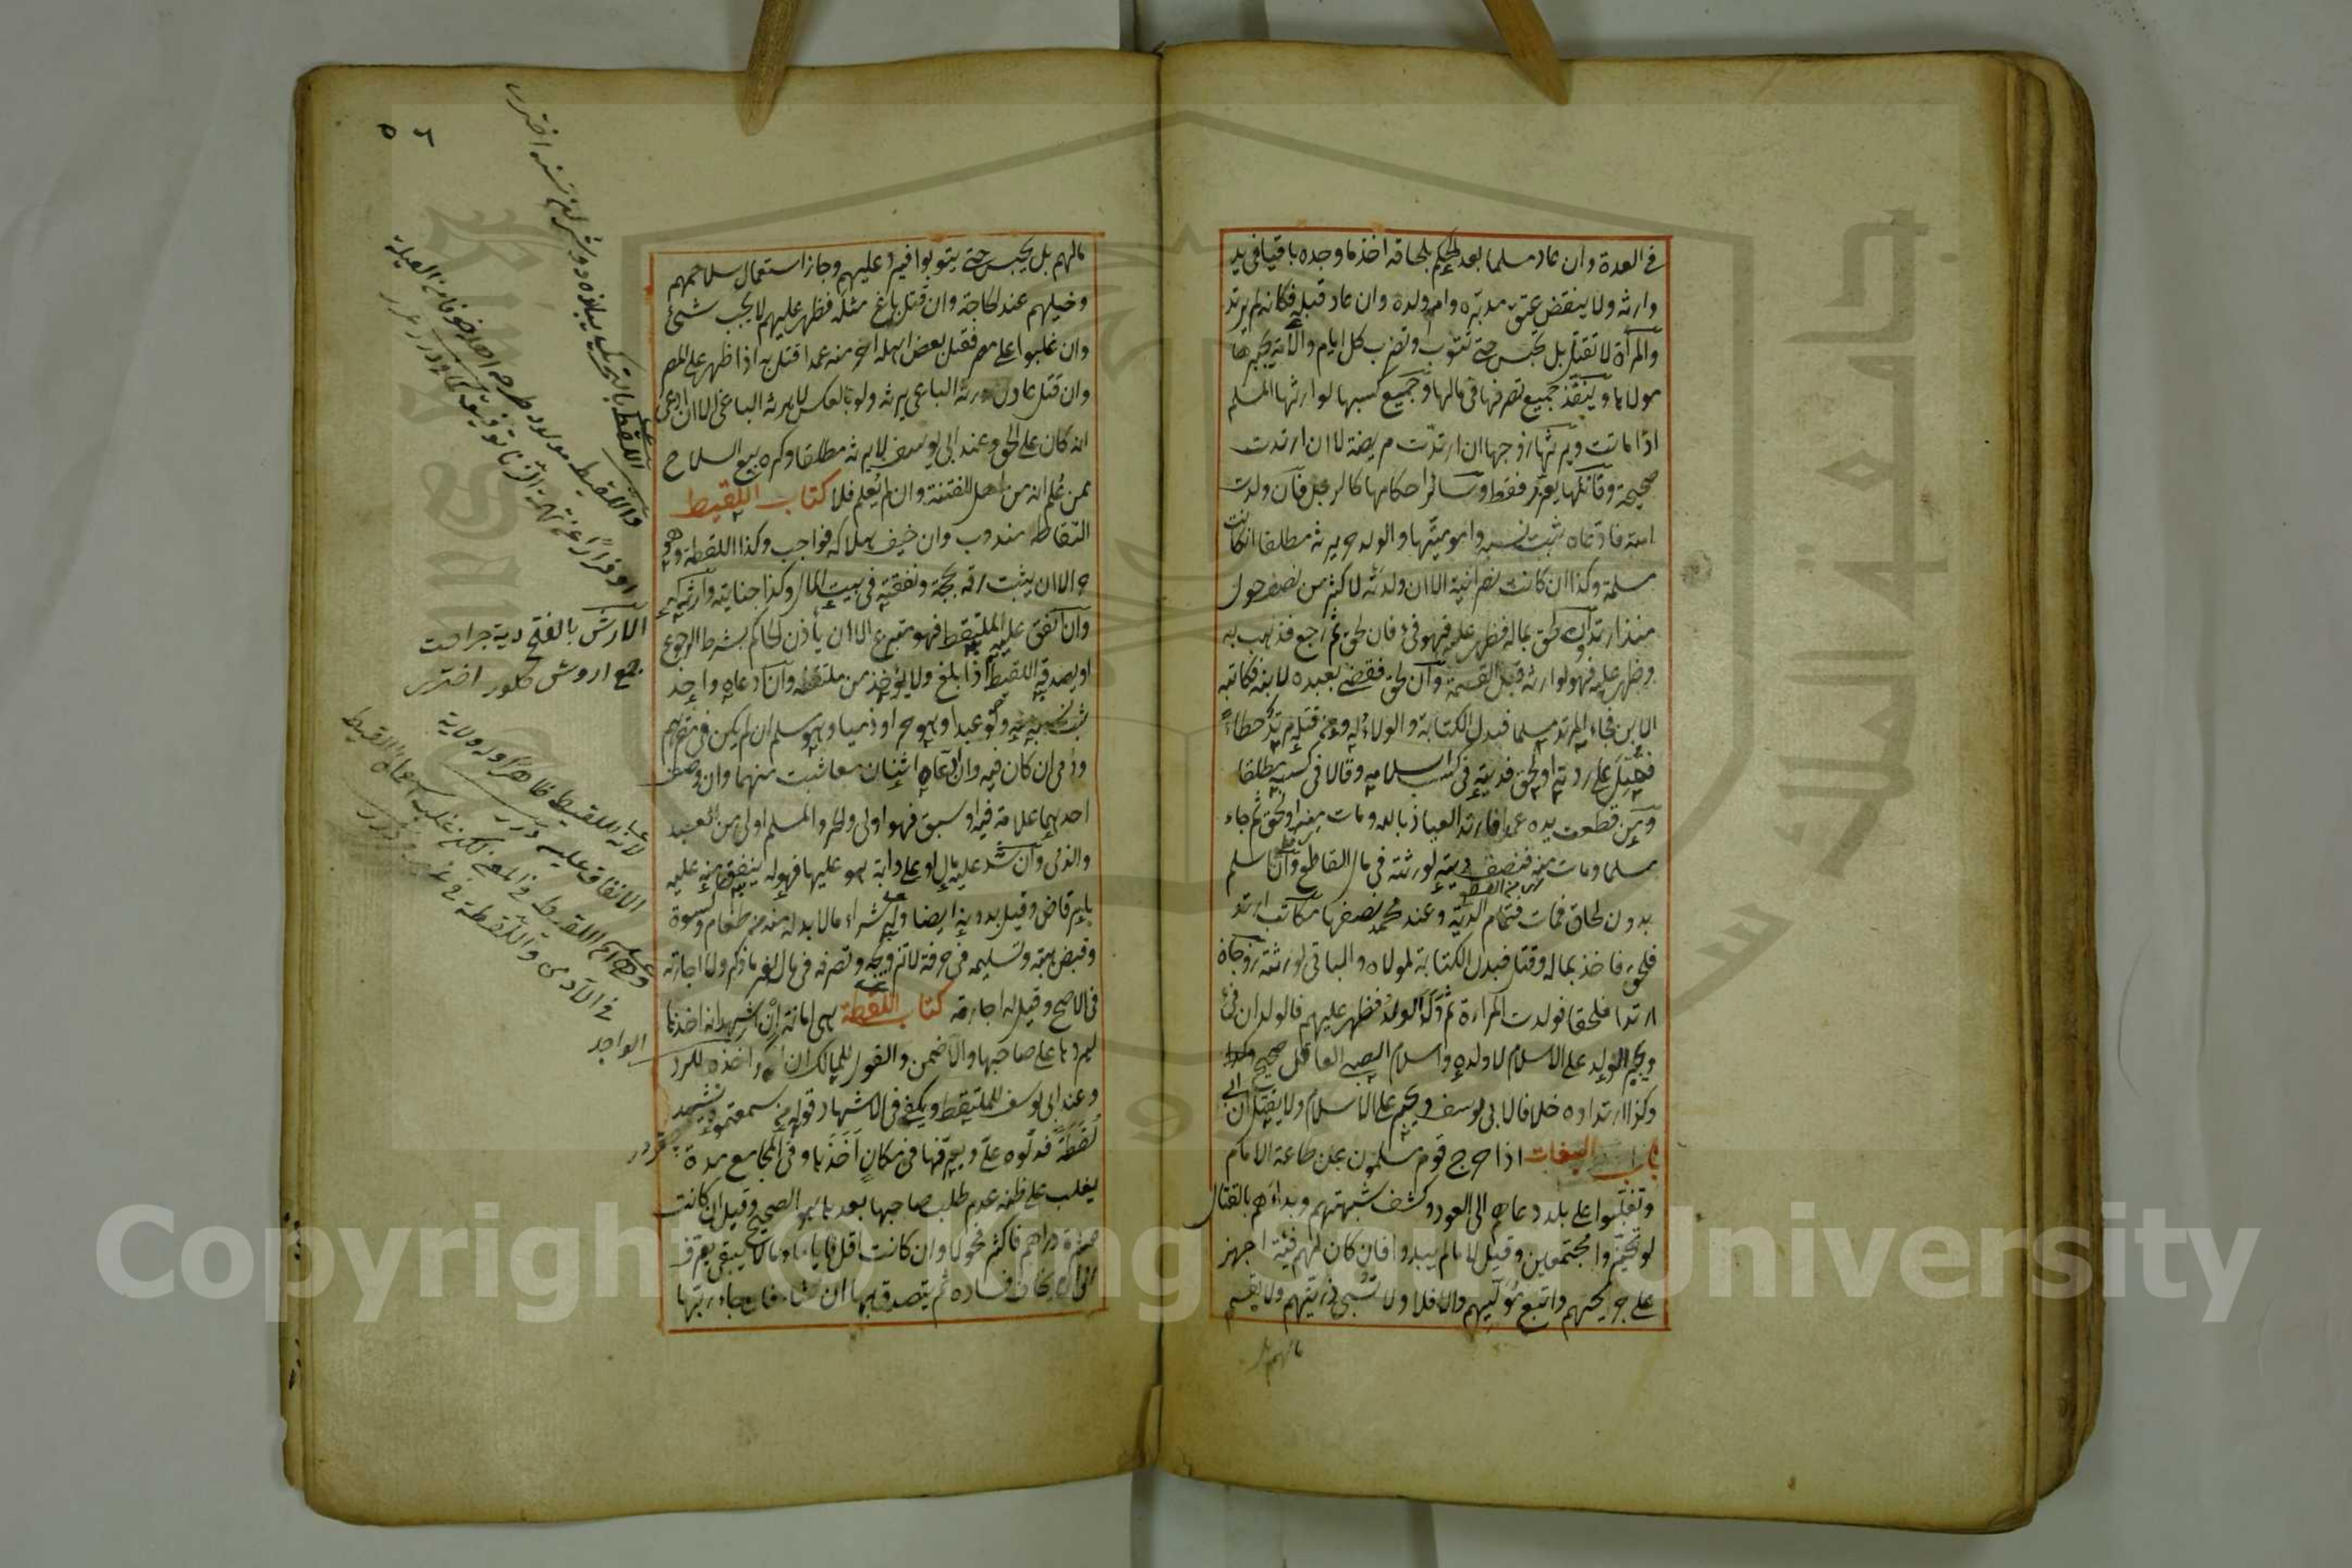 في العدة وان عاد مسلما بعد الحكم بلحاقه اخذ ما وجده باقيا في يد
وارثه ولا ينقض عتق مدبره وام ولده وان عاد قبله فكانه لم يرتد
والمرأة لا تقتل بل تحبس حتى تتوب وتضرب كل ايام والامة يجبرها
مولاها وينفذ جميع تصرفها في مالها وجميع كسبها لوارثها المسلم
اذا ماتت ويرثها زوجها ان ارتدت مريضة لا ان ارتدت
صحيحة وقاتلها يعزر فقط وسائر احكامها كالرجل فان ولدت
امته فادعاه ثبت نسبه وامومیتها والولد حر يرثه مطلقا ان كانت
مسلمة وكذا ان كانت نصرانية الا ان ولدته لاكثر من نصف حول
منذ ارتد وان لحق بماله فظهر عليه فهو فئ فان لحق ثم رجع فذهب به
وظهر عليه فهو لوارثه قبل القسمة وان لحق فقضى بعبده لابنه فكاتبه
الابن فجاء المرتد مسلما فبدل الكتابة والولاء له ومن قتله مرتد خطاء
فقتل على ردته او لحق فديته في كسب اسلامه وقالا في كسبيه مطلقا
ومن قطعت يده عمدا فارتد العياذ بالله ومات منه او لحق ثم جاء
مسلما ومات منه فنصف ديته لورثته في مال القاطع وان اسلم
بدون لحاق فمات فتمام الدية وعند محمد نصفها مكاتب ارتد
فلحق فاخذ بماله وقتل فبدل الكتابة لمولاه والباقي لورثته زوجان
ارتدا فلحقا فولدت المرأة ثم ولد الولد فظهر عليهم فالولدان فئ
ويجبر الولد على الاسلام لا ولده واسلام الصبي العاقل صحيح
وكذا ارتداده خلافا لابي يوسف ويجبر على الاسلام ولا يقتل ان ابى
باب البغات اذا خرج قوم مسلمون عن طاعة الامام
وتغلبوا على بلد دعاهم الى العود وكشف شبهتهم وبدأهم بالقتال
لو تحيزوا مجتمعين وقيل لا ما لم يبدوا فان كان لهم فئة اجهز
على جريحهم واتبع موليهم والا فلا ولا تسبى ذريتهم ولا يقسم
مالهم بل
٥٦
مالهم بل يحبس حتى يتوبوا فيرد عليهم وجاز استعمال سلاحهم
وخيلهم عند الحاجة وان قتل باغ مثله فظهر عليهم لا يجب شئ
وان غلبوا على مصر فقتل بعض اهله آخر منه عمدا قتل به اذا ظهر على المصر
وان قتل عادل مورثه الباغي يرثه ولو بالعكس لا يرثه الباغي الا ان ادعى
انه كان على الحق وعند ابي يوسف لا يرثه مطلقا وكره بيع السلاح
ممن علم انه من اهل الفتنة وان لم يعلم فلا كتاب اللقيط
التقاطه مندوب وان خيف هلاكه فواجب وكذا اللقطة وهو
حر الا ان يثبت رقه بحجة ونفقته في بيت المال وكذا جنايته وارثه له
وان انفق عليه الملتقط فهو متبرع الا ان يأذن الحاكم بشرط الرجوع
او يصدقه اللقيط اذا بلغ ولا يؤخذ من ملتقطه وان ادعاه واحد
ثبت نسبه منه ولو عبدا وهو حر او ذميا وهو مسلم ان لم يكن في مقرهم
وذمي ان كان فيه وان ادعاه اثنان معا ثبت منهما وان وصف
احدهما علامة فيه او سبق فهو اولى والحر والمسلم اولى من العبد
والذمي وان شد عليه مال او على دابة هو عليها فهو له ينفق منه عليه
بامر قاض وقيل بدونه ايضا وله شراء ما لا بد له منه من طعام وكسوة
وقبض هبته وتسليمه في حرفة لا تزويجه وتصرفه في مال لغير ما ذكر ولا اجارته
في الاصح وقيل له اجارته كتاب اللقطة هي امانة ان اشهد انه اخذها
ليردها على صاحبها والا ضمن والقول للمالك ان انكر اخذه للرد
وعند ابي يوسف للملتقط ويكفي في الاشهاد قوله من سمعتموه ينشد
لقطة فدلوه علي ويعرفها في مكان اخذها وفي المجامع مدة
يغلب على ظنه عدم طلب صاحبها بعدها هو الصحيح وقيل ان كانت
عشرة دراهم فاكثر فحولا وان كانت اقل فاياما وما لا يبقى يعرف
الى ان يخاف فساده ثم يتصدق بها ان شاء فان جاء ربها
واللقيط مولود طرحه اهله خوفا من العيلة
او فرارا عن تهمة الزنا
الارش بالفتح دية جراحت
جمع اروش كلور اخترى
الانفاق عليه درر
الواجد